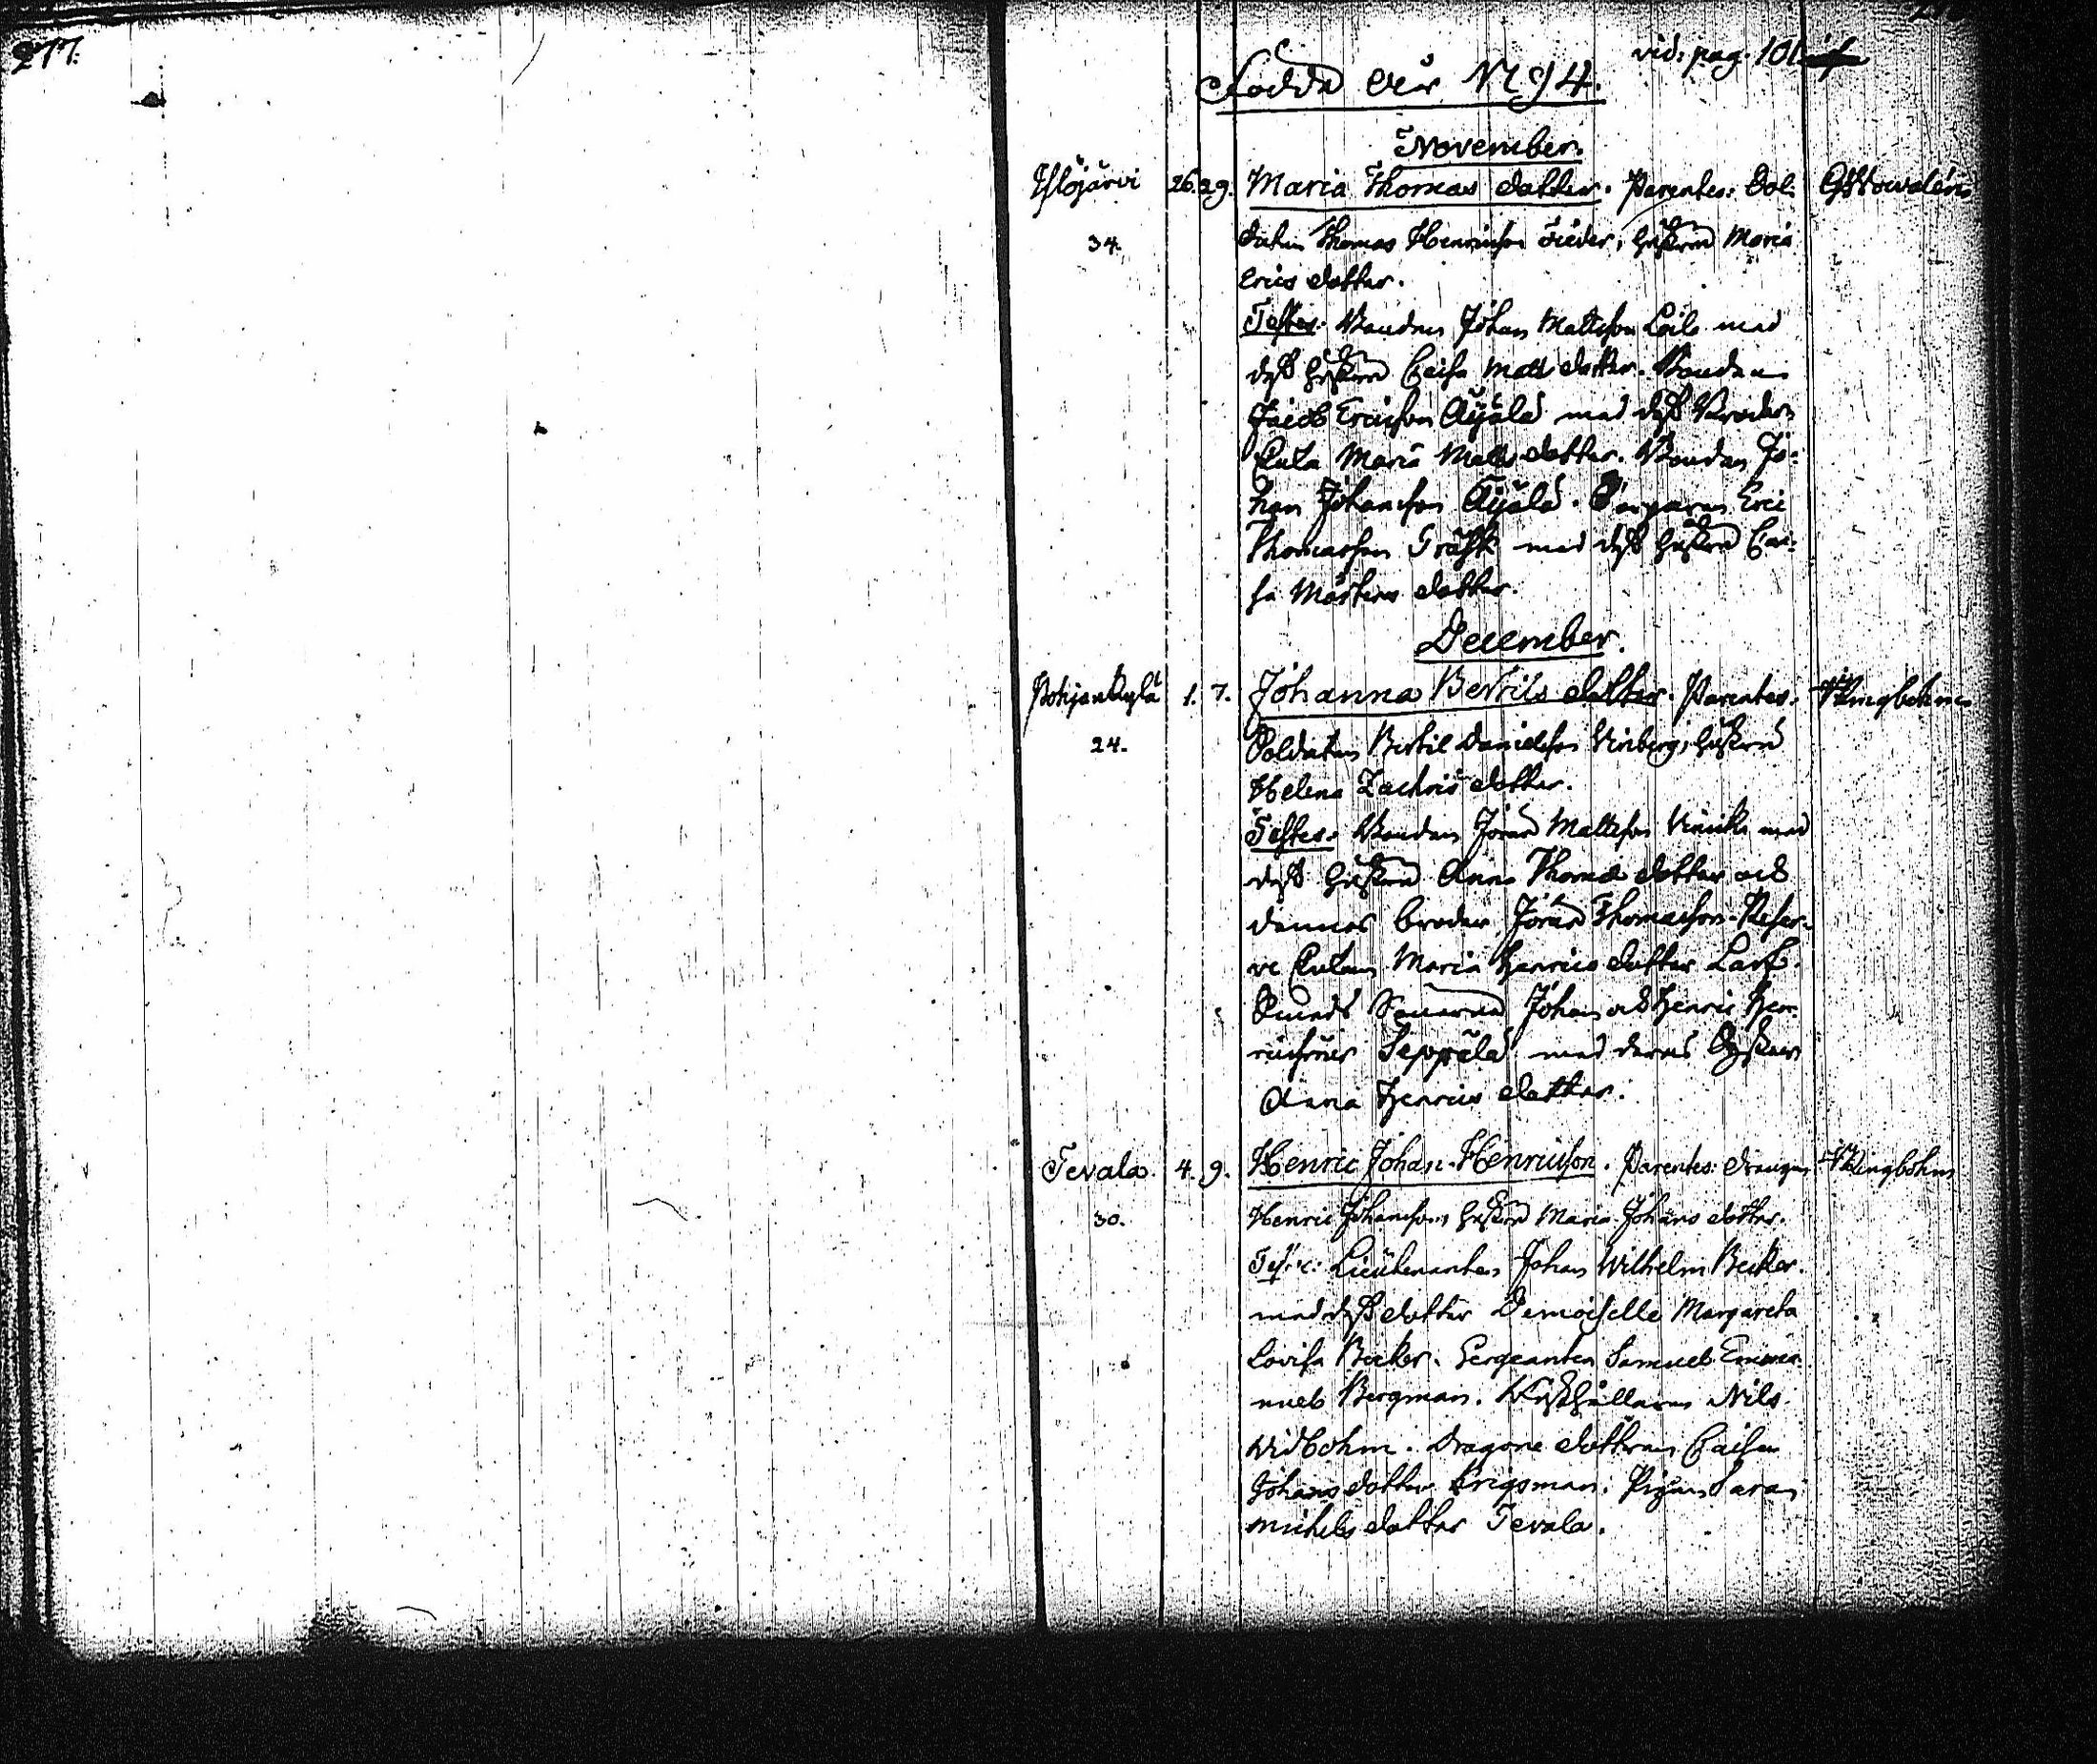 277.
vid: pag. 101
Födde år 1794.
November.
Ylöjärvi 26. 29. Maria Thomas dotter. Parentes: Sol:
34. daten Thomas Henricsson hustrun Maria
Erics dotter.
Testes: Bonden Johan Mattsson med
dess hustru Caisa Matts dotter. Bonden
Jacob Ericsson Äijälä med dess Broders
Enka Maria Matts dotter. Bonden Jo:
han Johansson Äijälä. Torparen Eric
Thomasson Träsk med dess hustru Cai:
sa Mårtens dotter.
December.
Pohjankylä 1. 7. Johanna Bertils dotter. Parentes: Ringbohm
24. Soldaten Bertil Danielsson hustrun
Helena Zachris dotter.
Testes: Bonden Jöran Mattsson med
dess hustru Anna Thomas dotter och
dennes broder Jöran Thomasson. Reser:
ve Enkan Maria Henrics dotter
Sönerne Johan och Henric Hen:
ricssöner Seppälä med deras Syster
Anna Henrics dotter.
Tevala. 4. 9. Henric Johan Henricsson. Parentes: drengen Ringbohm
30. Henric Johansson, hustrun Maria Johans dotter.
Testes: Lieutenanten Johan Wilhelm Becker
med dess dotter Demoiselle Margareta
Lovisa Becker. Sergeanten Samuel Emma:
nuel Bergman. Nils
Widbohm. Dragone dottern Caisa
Johans dotter Krigsman. Pigan Sara
Michels dotter Tevala.